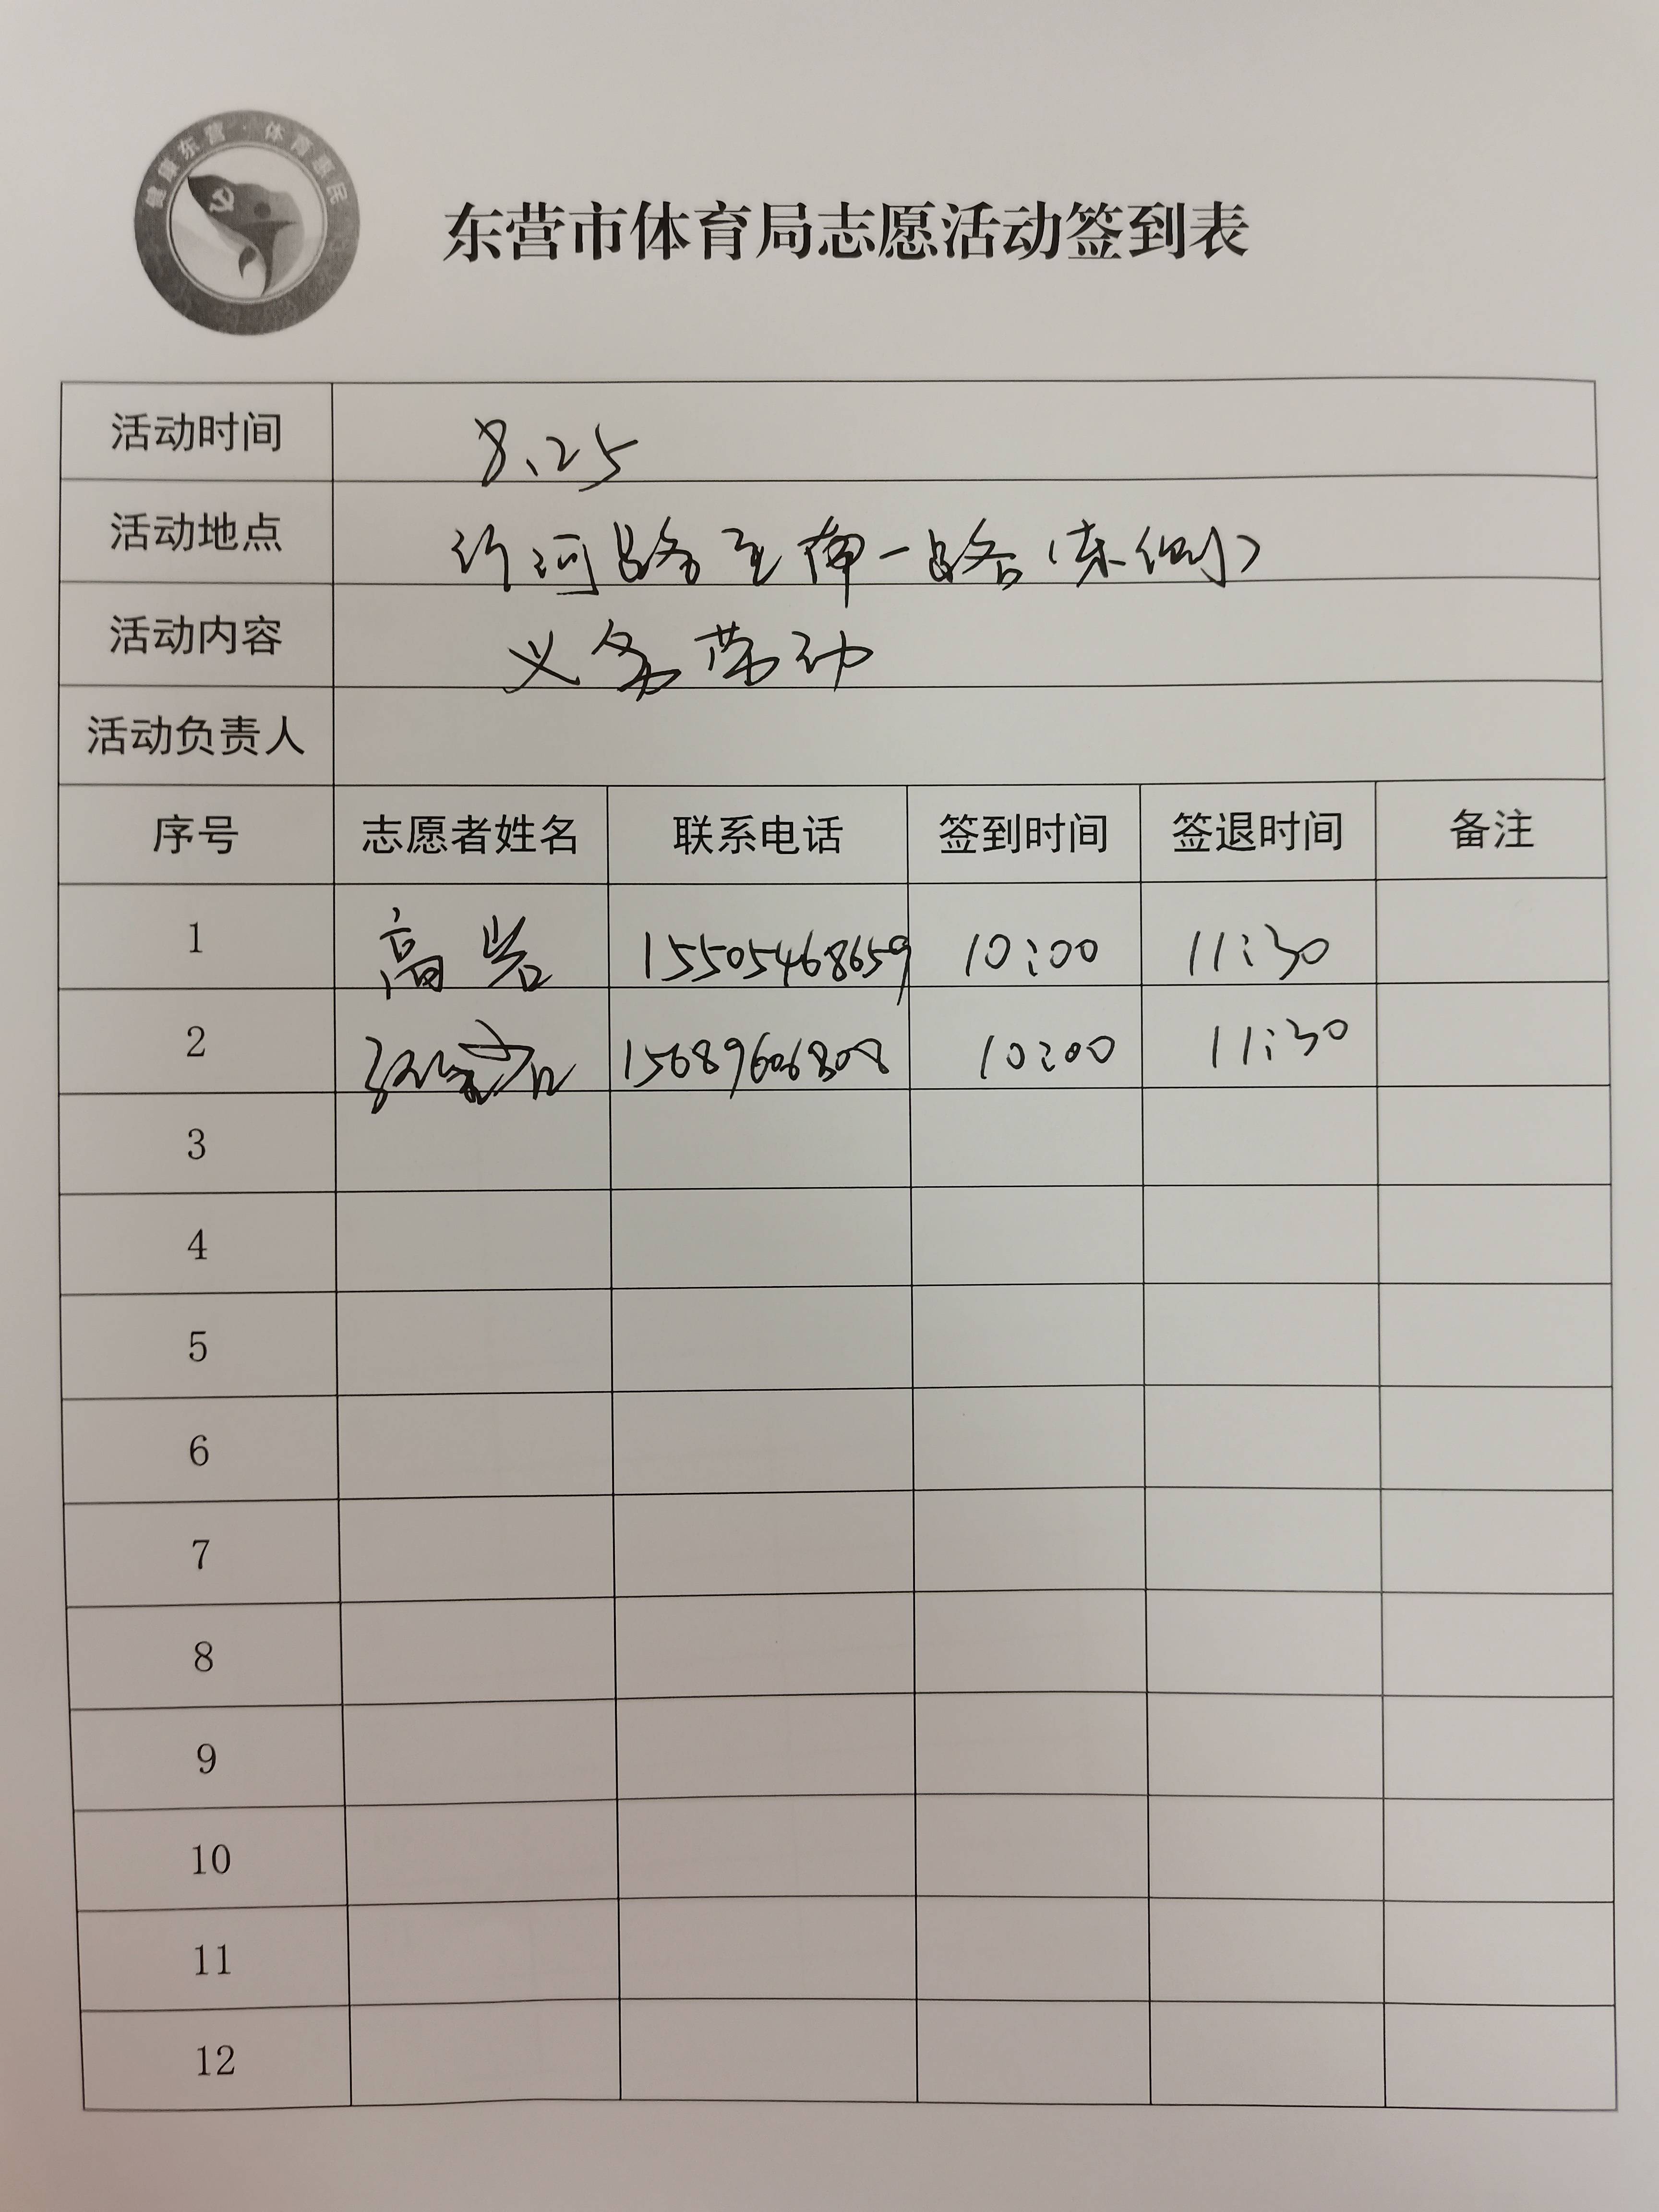 健康东营·体育惠民
东营市体育局志愿活动签到表
活动时间 8.25
活动地点 沂河路至南一路(东侧)
活动内容 义务劳动
活动负责人
序号 志愿者姓名 联系电话 签到时间 签退时间 备注
1 高岩 15505468659 10:00 11:30
2 15689606808 10:00 11:30
3
4
5
6
7
8
9
10
11
12